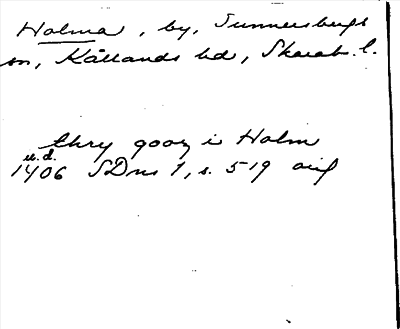 Holma, by, Sunnersbergs
sn, Kållands hd, Skarab. l.
thry gooz i Holm
u.d.
1406 SDns 1, s. 519 orig